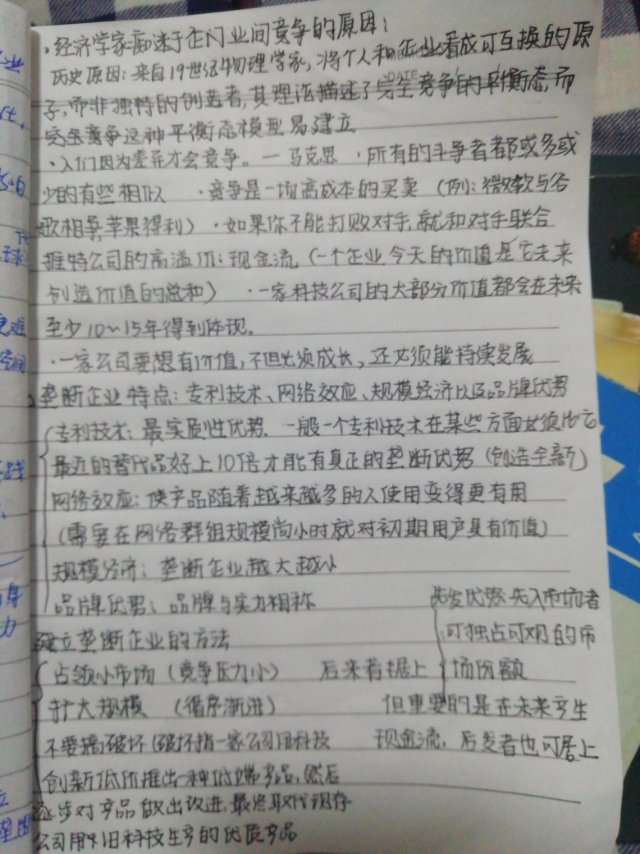 ·经济学家痴迷于企业间竞争的原因：
历史原因：来自19世纪物理学家，将个人和企业看成可互换的原
子，而非独特的创造者，其理论描述了完全竞争的平衡态，而
完全竞争这种平衡态模型易建立
·人们因为差异才会竞争。一马克思 ·所有的斗争者都或多或
少的有些相似 ·竞争是一场高成本的买卖（例：微软与谷
歌相争苹果得利）·如果你不能打败对手，就和对手联合
推特公司的高溢价：现金流（一个企业今天的价值是它未来
创造价值的总和） ·一家科技公司的大部分价值都会在未来
至少10～15年得到体现。
·一家公司要想有价值，不但必须成长，还必须能持续发展
垄断企业特点：专利技术、网络效应、规模经济以及品牌优势
专利技术：最实质性优势. 一般一个专利技术在某些方面必须比它
最近的替代品好上10倍才能有真正的垄断优势（创造全新）
网络效应：使产品随着越来越多的人使用变得更有用
（需要在网络群组规模尚小时就对初期用户具有价值）
规模经济：垄断企业越大越
品牌优势：品牌与实力相称
建立垄断企业的方法
占领小市场（竞争压力小）
扩大规模 （循序渐进）
不要搞破坏（破坏指一家公司用科技
创新低价推出一种低端产品，然后
逐步对产品做出改进，最终取代现存
公司用旧科技生产的优质产品
后来者居上
先发优势：先入市场者
可独占可观的市
场份额
但重要的是在未来产生
现金流，后发者也可居上